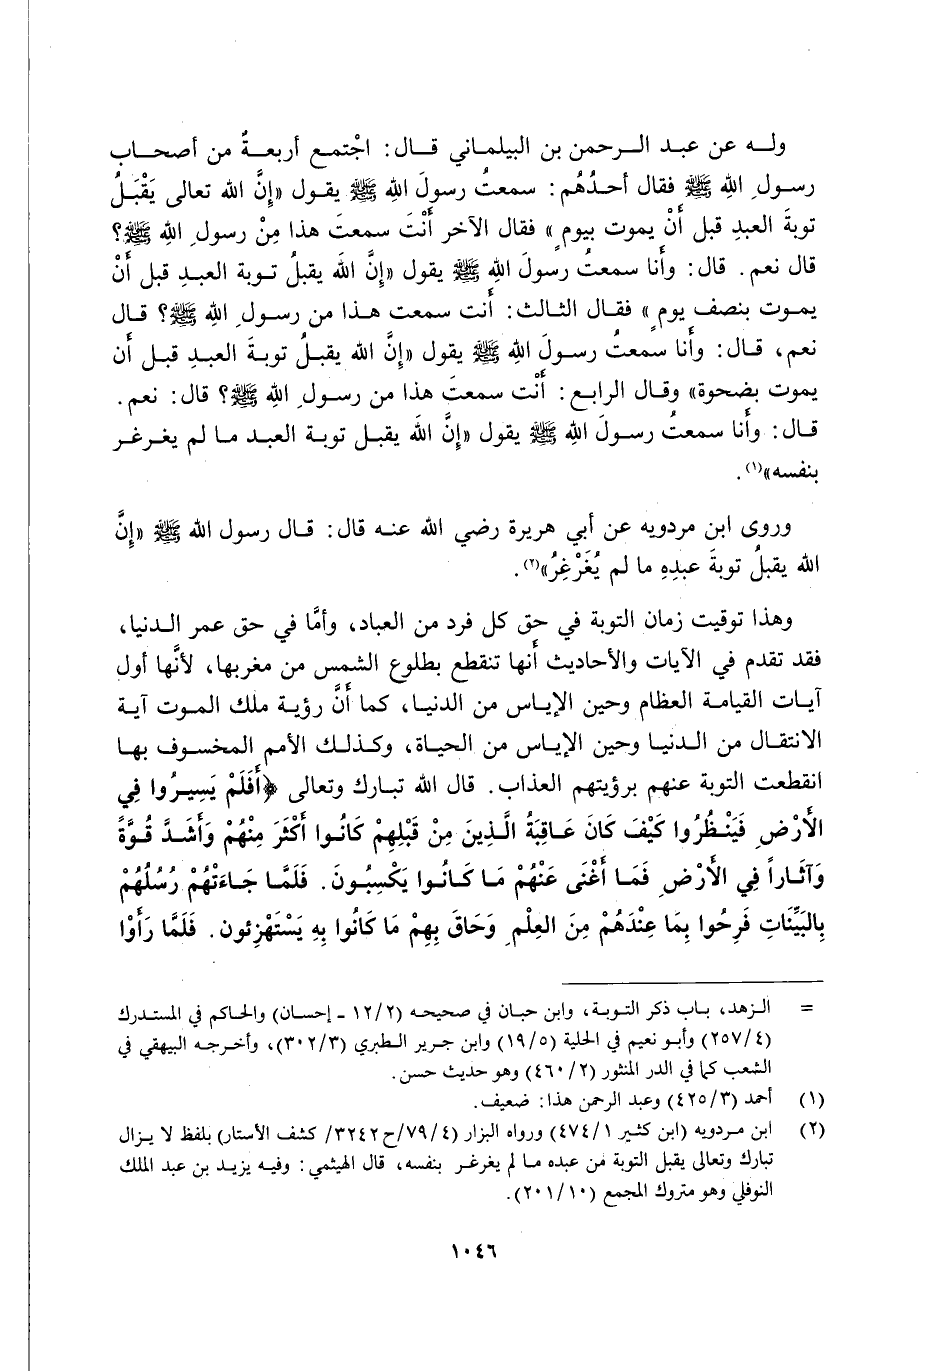 ولــه عن عبـد الــرحمن بن البيلماني قــال: اجْتمـع أربعــةٌ من أصحــاب
رسـولِ اللهِ ﷺ فقال أحدُهُم: سمعتُ رسولَ اللهِ ﷺ يقول «إنَّ الله تعالى يَقْبَـلُ
توبةَ العبدِ قبل أنْ يموت بيومٍ» فقال الآخر أَنْتَ سمعتَ هذا مِنْ رسولِ اللهِ ﷺ؟
قال نعم. قال: وأنا سمعتُ رسولَ اللهِ ﷺ يقول «إنَّ اللهَ يقبلُ تـوبة العبـدِ قبل أنْ
يمـوت بنصف يومٍ» فقـال الثـالث: أَنت سمعت هـذا من رسـولِ اللهِ ﷺ؟ قـال
نعم، قـال: وأَنا سمعتُ رسـولَ اللهِ ﷺ يقول «إنَّ الله يقبـلُ توبـةَ العبـدِ قبـل أن
يموت بضحوة» وقـال الرابـع: أَنْت سمعتَ هذا من رسـولِ اللهِ ﷺ؟ قال: نعم.
قـال: وأنا سمعتُ رسـولَ اللهِ ﷺ يقول «إنَّ اللهَ يقبـل توبـة العبـد مـا لم يغـرغـر
بنفسه»(١).
وروى ابن مردويه عن أبي هريرة رضي الله عنـه قال: قـال رسول الله ﷺ «إنَّ
الله يقبلُ توبةَ عبدِهِ ما لم يُغَرْغِرُ»(٢).
وهذا توقيت زمان التوبة في حق كل فرد من العباد، وأمَّا في حق عمر الـدنيا،
فقد تقدم في الآيات والأحاديث أَنها تنقطع بطلوع الشمس من مغربها، لأنَّها أول
آيـات القيامـة العظام وحين الإيـاس من الدنيـا، كمـا أنَّ رؤيـة ملك المـوت آيـة
الانتقـال من الـدنيـا وحين الإيـاس من الحيـاة، وكـذلـك الأمم المخسـوف بهـا
انقطعت التوبة عنهم برؤيتهم العذاب. قال الله تبارك وتعالى ﴿أَفَلَمْ يَسِيـرُوا فِي
الأَرْضِ فَيَنْـظُرُوا كَيْفَ كَانَ عَـاقِبَةُ الَّـذِينَ مِنْ قَبْلِهِمْ كَانُـوا أَكْثَرَ مِنْهُمْ وَأَشَـدَّ قُـوَّةً
وَآثَـاراً فِي الأَرْضِ فَمَـا أَغْنَى عَنْهُمْ مَـا كَـانُـوا يَكْسِبُـونَ. فَلَمَّـا جَـاءَتْهُمْ رُسُلُهُمْ
بِالبَيِّنَاتِ فَرِحُوا بِمَا عِنْدَهُمْ مِنَ العِلْمِ وَحَاقَ بِهِمْ مَا كَانُوا بِهِ يَسْتَهْزِئون. فَلَمَّا رَأَوْا
= الـزهد، بـاب ذكر التـوبـة، وابن حبـان في صحيحـه (١٢/٢ - إحسـان) والحـاكم في المستـدرك
(٢٥٧/٤) وأبـو نعيم في الحلية (١٩/٥) وابن جرير الـطبري (٣٠٢/٣)، وأخـرجـه البيهقي في
الشعب كما في الدر المنثور (٤٦٠/٢) وهو حديث حسن.
(١) أحمد (٤٢٥/٣) وعبد الرحمن هذا: ضعيف.
(٢) ابن مـردويه (ابن كثير ٤٧٤/١) ورواه البزار (٧٩/٤/ح ٣٢٤٢/ كشف الأستار) بلفظ لا يـزال
تبارك وتعالى يقبل التوبة من عبده مـا لم يغرغـر بنفسه، قال الهيثمي: وفيـه يزيـد بن عبد الملك
النوفلي وهو متروك المجمع (٢٠١/١٠).
١٠٤٦